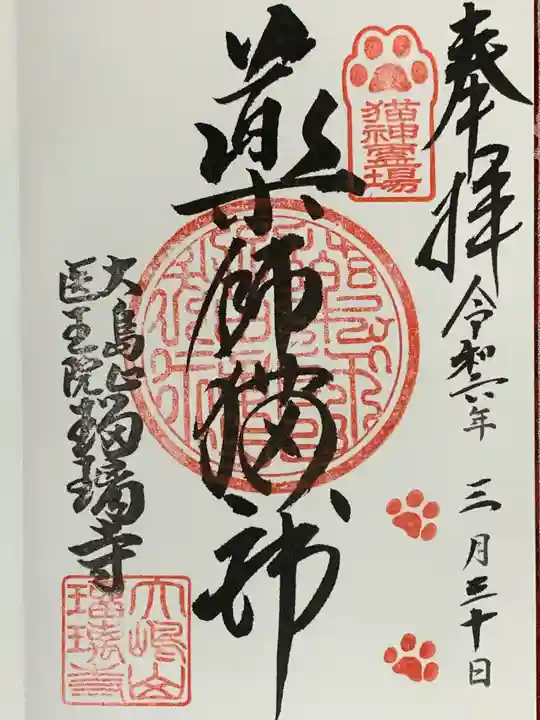 奉拝
令和六年 三月三十日
猫神霊場
薬師猫神
大島山
医王院
瑠璃寺
大嶋山
瑠璃寺